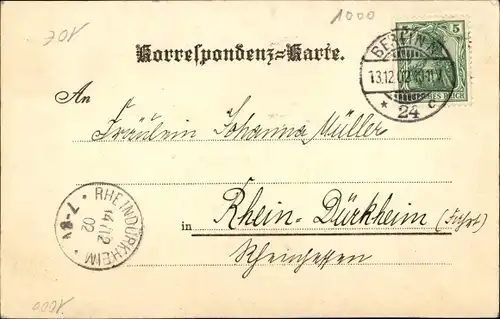 1000
Korrespondenz-Karte.
5
BERLIN N.
13.12.02.10-11V.
* 24 c
DEUTSCHES REICH
An
Fräulein Johanna Müller
in Rhein-Dürkheim
Rheinhessen
RHEINDÜRKHEIM
14/12
02
7-8V